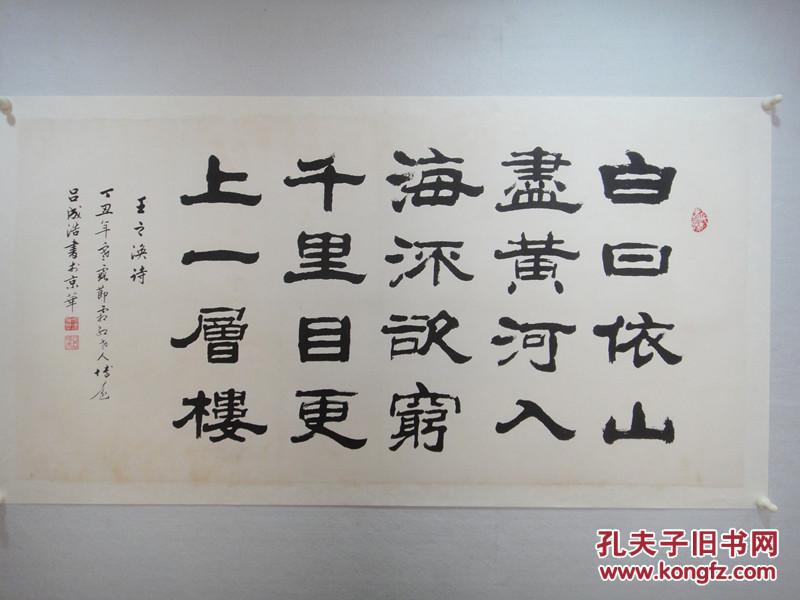 白日依山
盡黄河入
海流欲窮
千里目更
上一層樓
王之涣詩
丁丑年寒露節霜红老人
吕成浩書於京華
孔夫子旧书网
www.kongfz.com